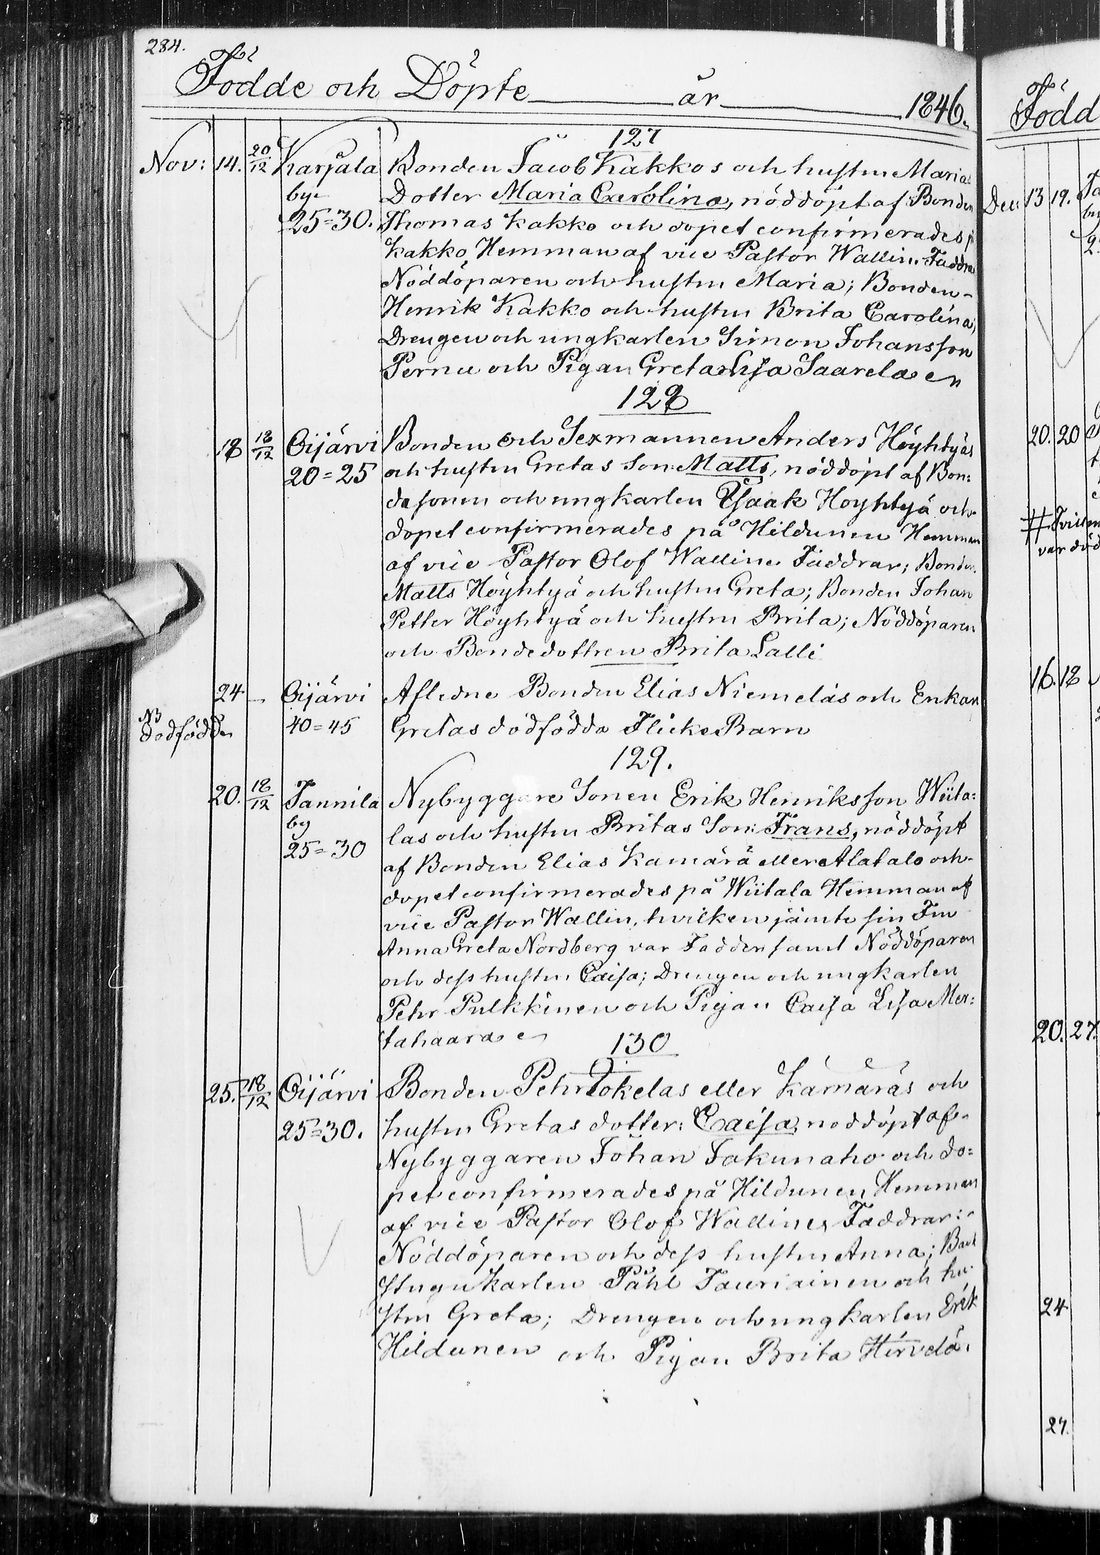 284.
Födde och Döpte år 1846.
127
Nov: 14. 20/12 Karjala Bonden Jacob Kakkos och hustru Maria
by Dotter Maria Carolina, nöddöpt af Bonden
25=30. Thomas Kakko och dopet confirmerades på
Kakko Hemman af vice Pastor Wallin. Faddrar
Nöddöparen och hustru Maria; Bonden
Henrik Kakko och hustru Brita Carolina,
Drengen och ungkarlen Simon Johansson
Pernu och Pigan Greta Lisa Saarela
128
18 18/12 Oijärvi Bonden och Sexmannen Anders Höyhtyäs
20=25 och hustru Gretas Son Matts, nöddöpt af Bon-
desonen och ungkarlen Isaak Höyhtyä och
dopet confirmerades på Hildunen Hemman
af vice Pastor Olof Wallin. Faddrar; Bonden
Matts Höyhtyä och hustru Greta; Bonden Johan
Petter Höyhtyä och hustru Brita; Nöddöparen
och Bondedottren Brita Lalli
24 — Oijärvi Aflidne Bonden Elias Niemeläs och Enkan
NB dödfödd 40=45 Gretas dödfödda Flicke Barn
129.
20. 18/12 Tannila Nybyggare Sonen Erik Henriksson Wiita=
by las och hustru Britas Son: Frans, nöddöpt
25=30 af Bonden Elias Kämärä eller Alatalo och
dopet confirmerades på Wiitala Hemman af
vice Pastor Wallin, hvilken jämte sin Fru
Anna Greta Nordberg var Fadder samt Nöddöparen
och dess hustru Caisa; Drengen och ungkarlen
Pehr Pulkkinen och Pigan Caisa Lisa Mer=
tahaara
130
25. 18/12 Oijärvi Bonden Pehr Jokelas eller Kämäräs och
25=30. hustru Gretas dotter: Caisa, nöddöpt af
Nybyggaren Johan Jakunaho och do=
pet confirmerades på Hildunen Hemman
af vice Pastor Olof Wallin. Faddrar:
Nöddöparen och dess hustru Anna; Back
stugukarlen Påhl Tauriainen och hu-
stru Greta; Drengen och ungkarlen Erik
Hildunen och Pigan Brita
Född
Dec: 13 19.
20. 20
16. 18
20. 27.
24
27.